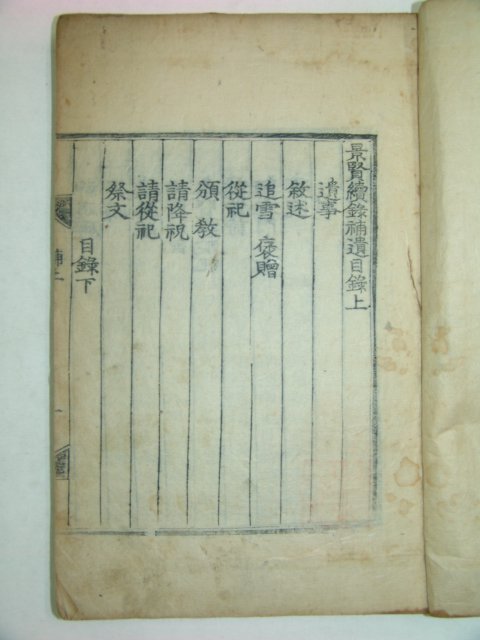 景賢續錄補遺目錄上
遺事
敘述
追雪 褒贈
從祀
頒教
請降祝
請從祀
祭文
目錄下
補上
一